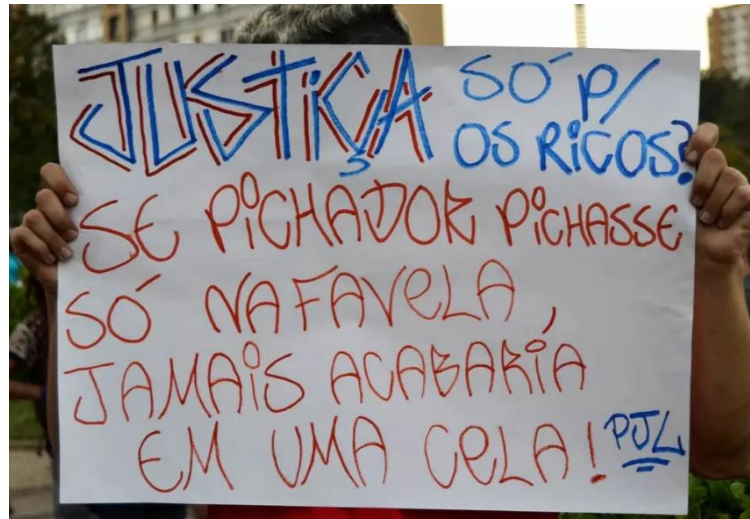 JUSTiÇA SÓ P/
OS RiCOS?
SE PiCHADOR PiCHASSE
SÓ NA FAVELA,
JAMAiS ACABARÍA
EM UMA CELA! PJL